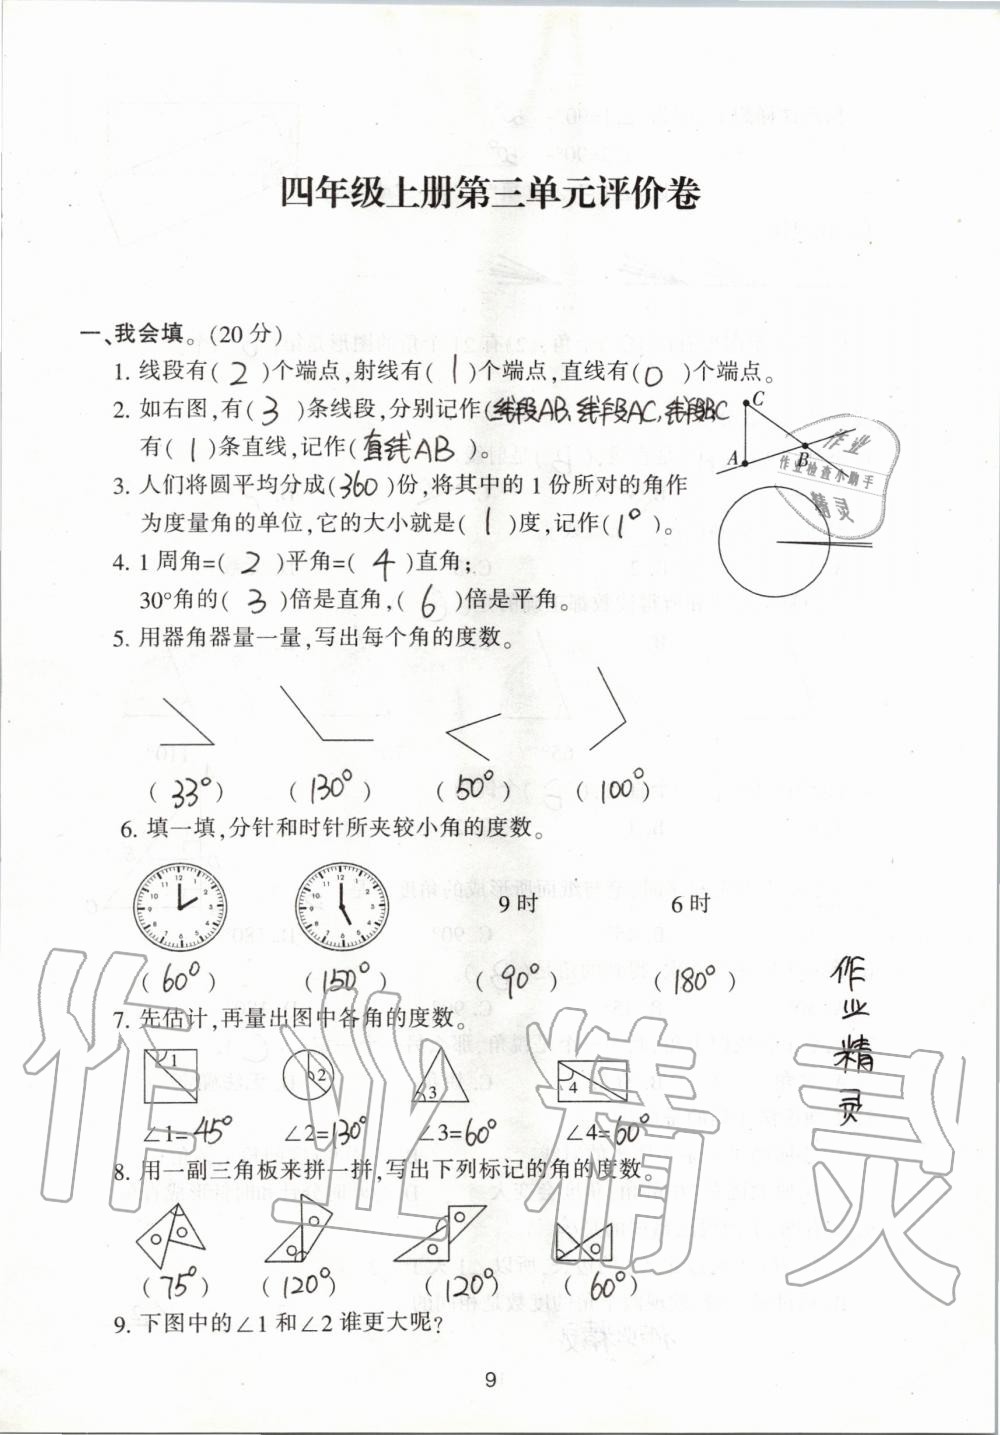 四年级上册第三单元评价卷
一、我会填。(20分)
1. 线段有( 2 )个端点,射线有( 1 )个端点,直线有( 0 )个端点。
2. 如右图,有( 3 )条线段,分别记作(线段AB、线段AC、线段BC
有( 1 )条直线,记作( 直线AB )。
C
A
B
作业
作业检查小助手
精灵
3. 人们将圆平均分成( 360 )份,将其中的1份所对的角作
为度量角的单位,它的大小就是( 1 )度,记作( 1° )。
4. 1周角=( 2 )平角=( 4 )直角;
30°角的( 3 )倍是直角,( 6 )倍是平角。
5. 用器角器量一量,写出每个角的度数。
( 33° ) ( 130° ) ( 50° ) ( 100° )
6. 填一填,分针和时针所夹较小角的度数。
9时 6时
( 60° ) ( 150° ) ( 90° ) ( 180° )
作业精灵
7. 先估计,再量出图中各角的度数。
1 2 3 4
∠1=45° ∠2=130° ∠3=60° ∠4=60°
8. 用一副三角板来拼一拼,写出下列标记的角的度数。
( 75° ) ( 120° ) ( 120° ) ( 60° )
9. 下图中的∠1和∠2谁更大呢?
9
作业精灵